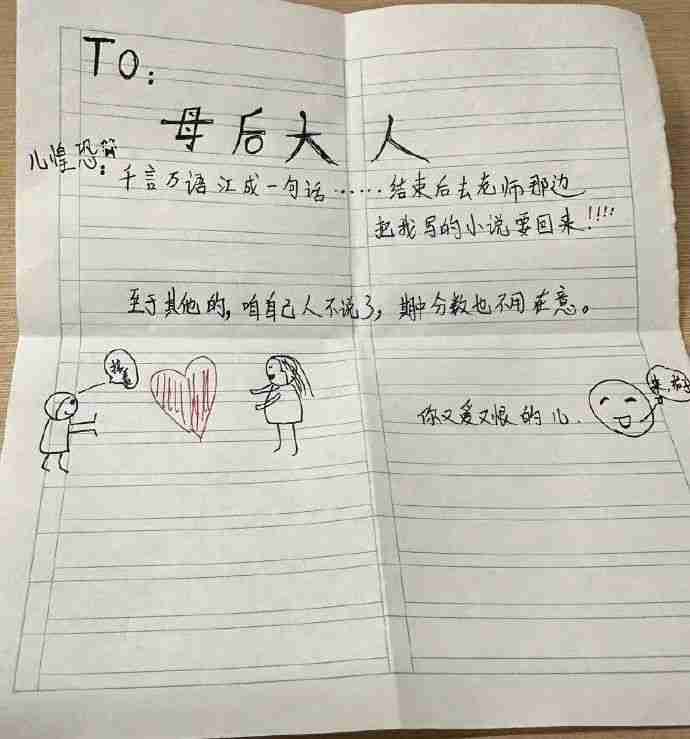 TO:
母后大人
儿惶恐
千言万语江成一句话……结束后去老师那边
把我写的小说要回来!!!!
至于其他的,咱自己人不说了,期中分数也不用在意。
你又爱又恨的儿.